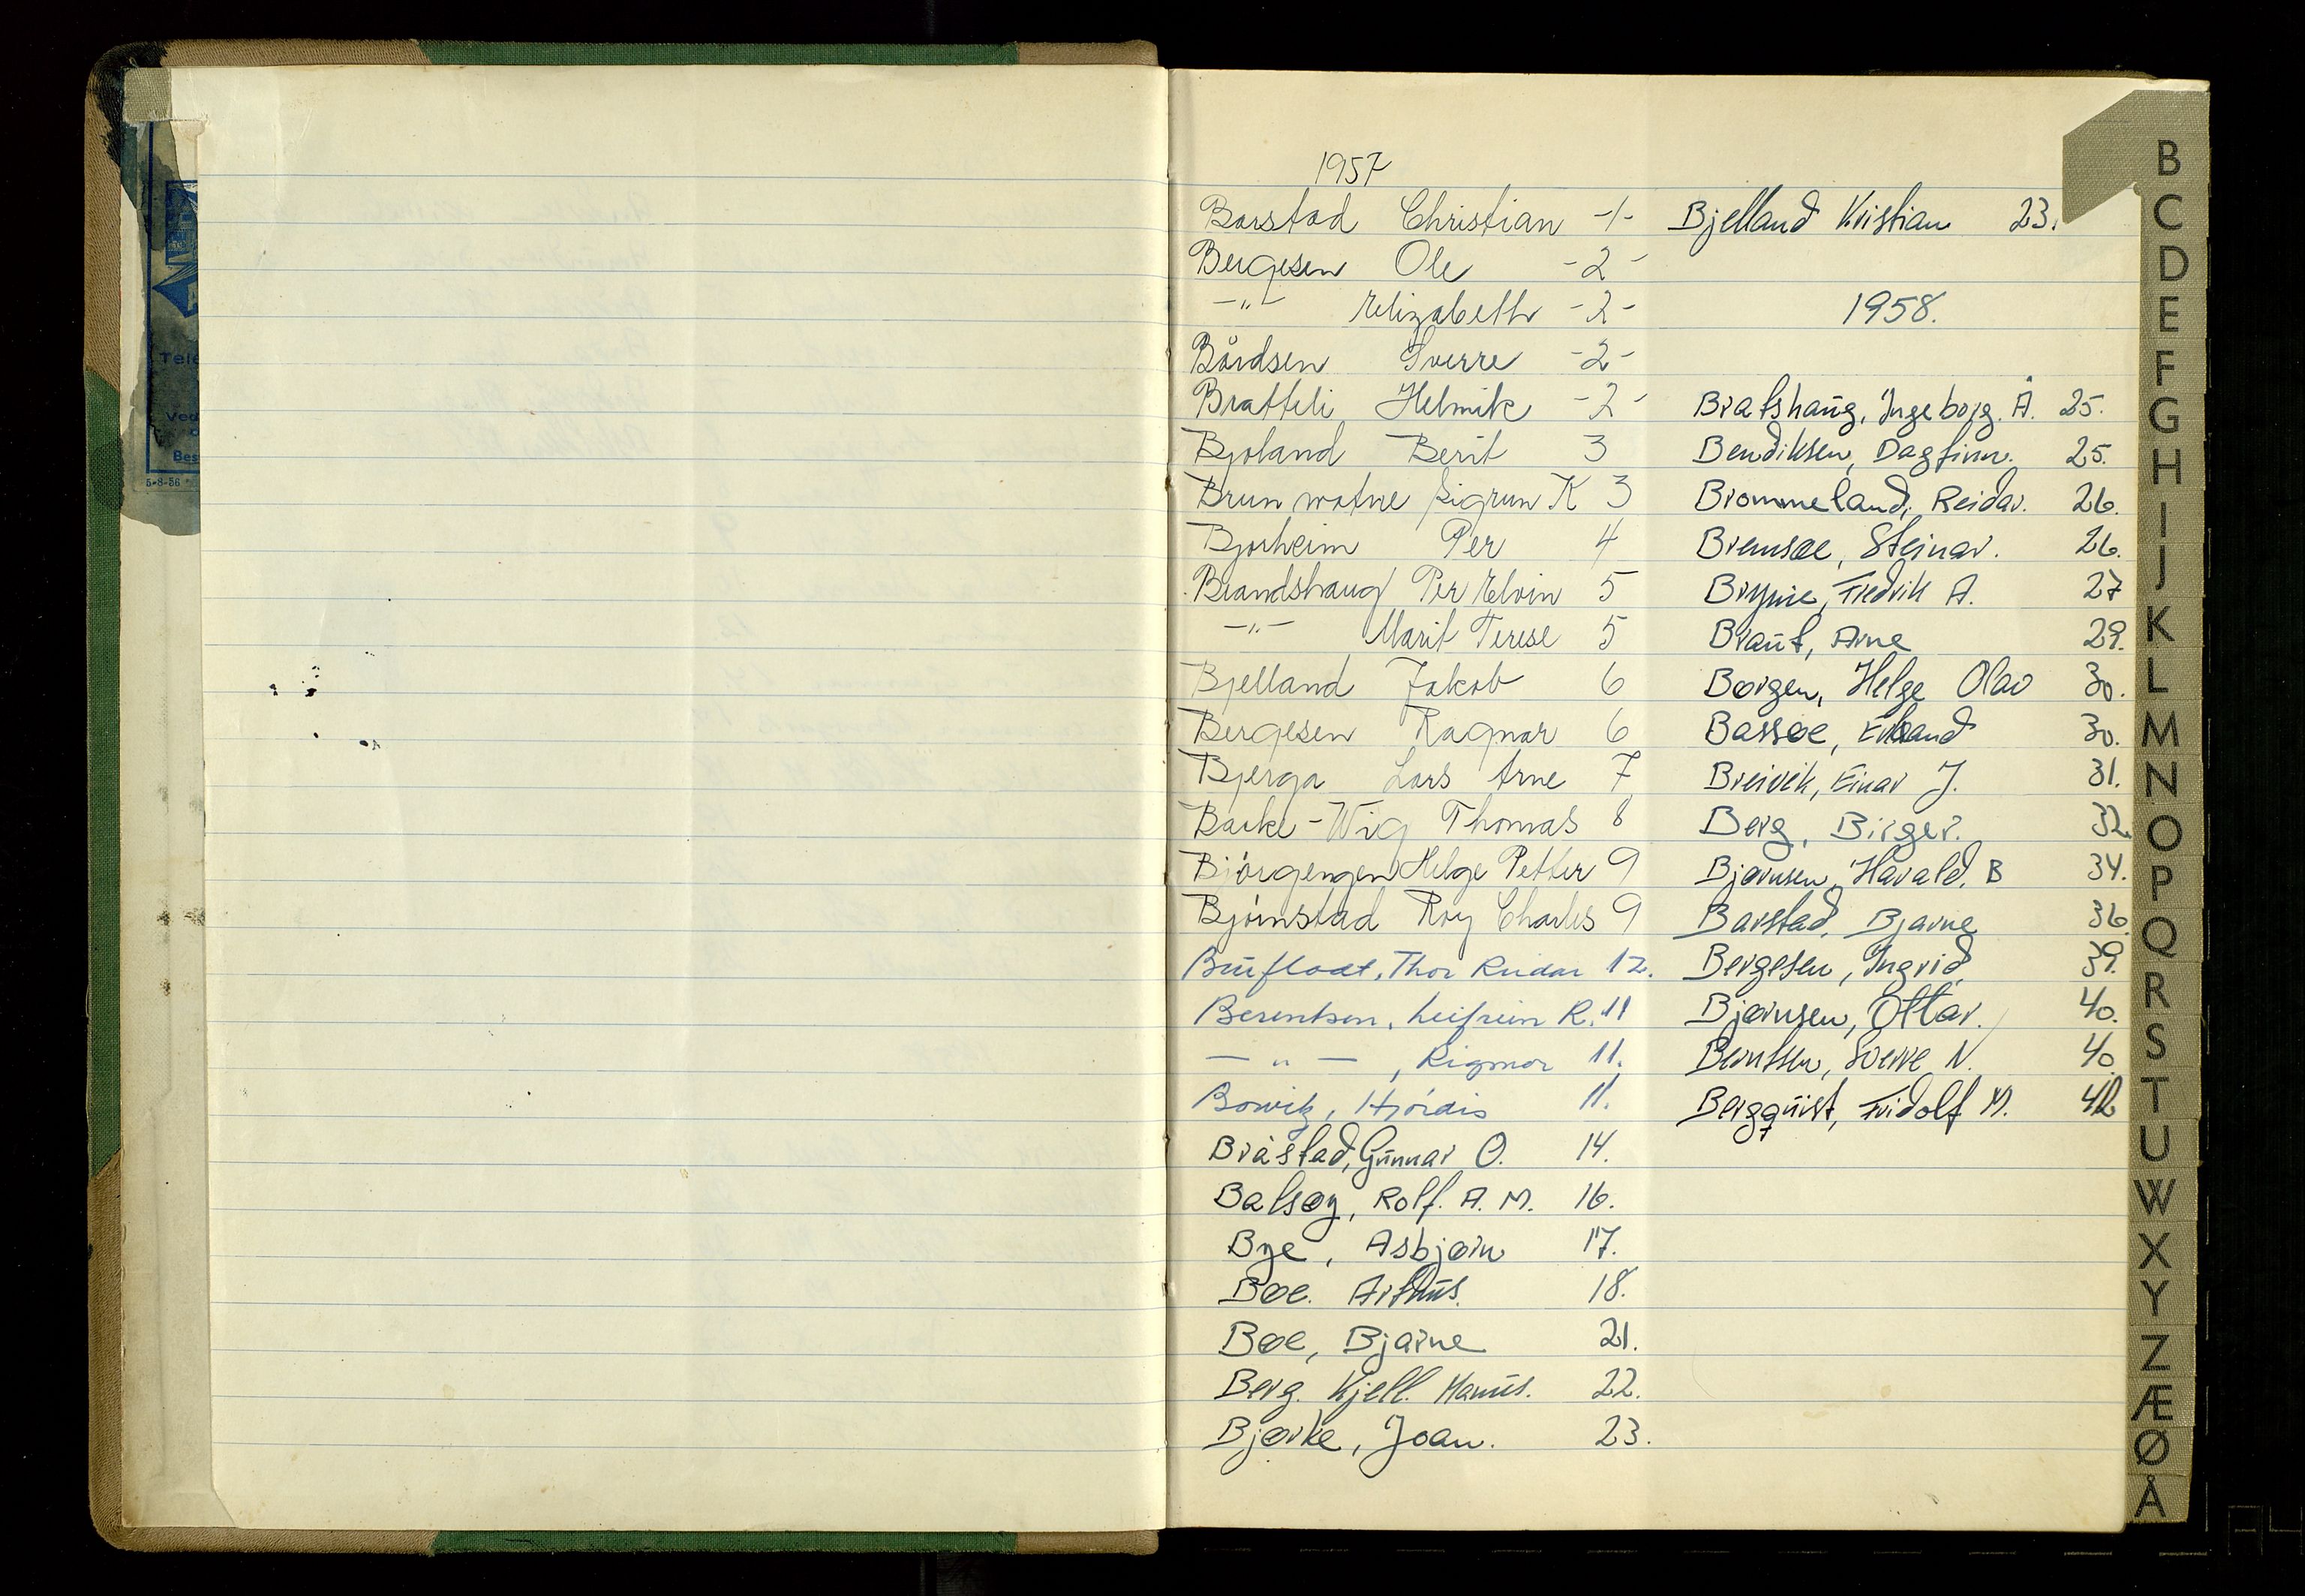 1957
Barstad Christian -1-
Bergesen Ole -2-
-"- Elizabeth -2-
Bårdsen Sverre -2-
Bratteli Helmik -2-
Bjoland Berit 3
Brun watne Sigrun K 3
Bjorheim Per 4
Brandshaug Per Elvin 5
-"- Marit Terese 5
Bjelland Jakob 6
Bergesen Ragnar 6
Bjerga Lars Arne 7
Barke-Wig Thomas 8
Bjørgengen Helge Petter 9
Bjørnstad Roy Charles 9
Thor Reidar 12.
Berentsen, Leifrein R. 11
- " - , Rigmor 11.
Bowitz, Hjördis 11.
Bråstad, Gunnar O. 14.
Batsøy, Rolf. A. M. 16.
Bye, Asbjørn 17.
Bøe. 18.
Bøe, Bjarne 21.
Berg. Kjell. 22.
Bjørke, Joan. 23.
Bjelland Kristian 23.
1958.
Bratshaug, Ingeborg. Å. 25.
Bendiksen, Dagfinn. 25.
Brommeland, Reidar. 26.
Bremsøe, Steinar. 26.
Bryne, Fredrik A. 27
Braut, Arne 29.
Børgen, Helge Olav 30.
Bassøe, 30.
Breivik, Einar J. 31.
Berg, Birger. 32.
Bjørnsen, Harald. B 34.
Barstad, Bjarne 36.
Bergesen, Ingrid 39.
Bjørnsen, Ottar. 40.
Berntsen, Sverre N. 40.
Bergquist, Fridolf M. 42
B
C
D
E
F
G
H
I
J
K
L
M
N
O
P
Q
R
S
T
U
W
X
Y
Z
Æ
Ø
Å
Tele
Ved
Bes
5-8-56